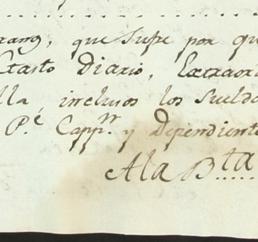 que Supe por que
Gasto Diario, Extraor
lla, inclusos los Sueldo
P.e Capp.n y Dependiente
A la Bta